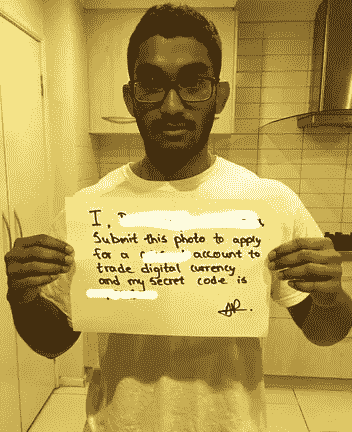 I,
Submit this photo to apply
for a account to
trade digital currency
and my secret code is